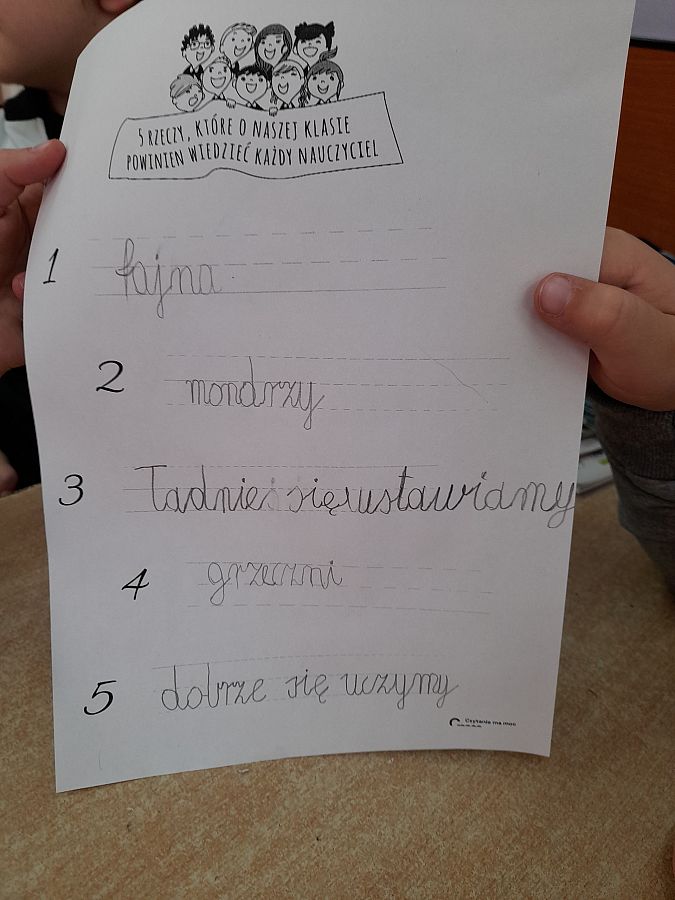 5 RZECZY, KTÓRE O NASZEJ KLASIE
POWINIEN WIEDZIEĆ KAŻDY NAUCZYCIEL
1 fajna
2 mondrzy
3 Ładnie się ustawiamy
4 grzeczni
5 dobrze się uczymy
Czytanie ma moc